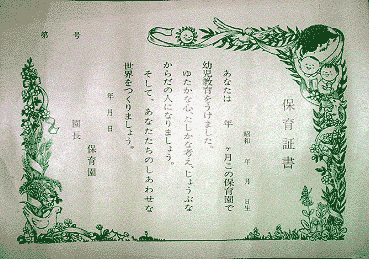 第　号
保育証書
昭和　年　月　日生
あなたは　年　ヶ月この保育園で
幼児教育をうけました。
ゆたかな心、たしかな考え、じょうぶな
からだの人になりましょう。
そして、あなたたちのしあわせな
世界をつくりましょう。
年　月　日
保育園
園長